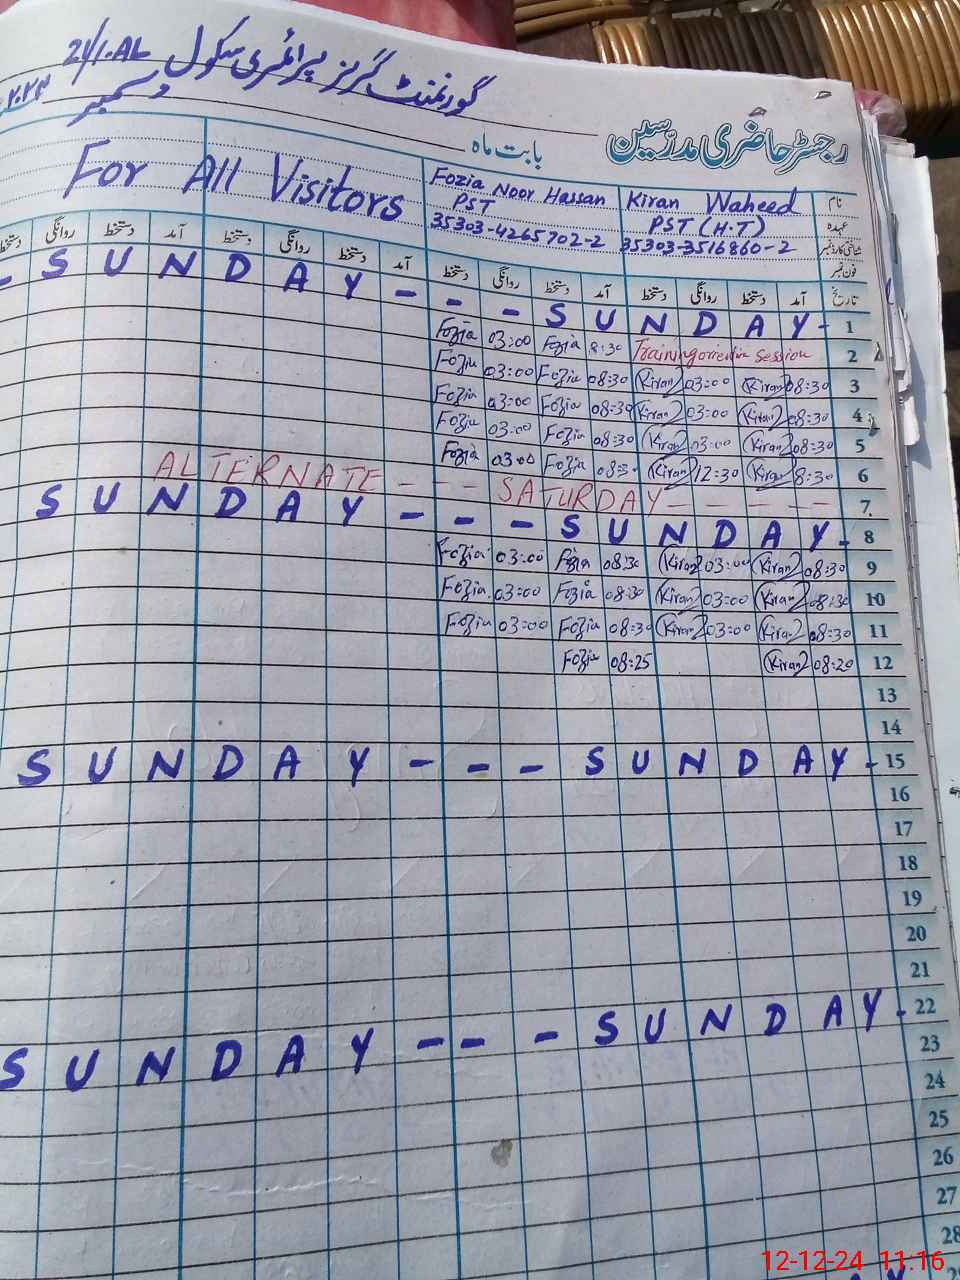 گورنمنٹ گرلز پرائمری سکول 21/1.AL
رجسٹر حاضری مدرسین بابت ماہ دسمبر ۲۰۲۴
نام Kiran Waheed Fozia Noor Hassan For All Visitors
عہدہ PST (H.T) PST
شناختی کارڈ نمبر 35303-3516860-2 35303-4265702-2
فون نمبر
تاریخ آمد دستخط روانگی دستخط آمد دستخط روانگی دستخط آمد دستخط روانگی دستخط آمد دستخط روانگی دستخط
SUNDAY - - - SUNDAY - 1
Fozia 03:00 Fozia 8:30 Training session 2
Fozia 03:00 Fozia 08:30 Kiran 03:00 Kiran 08:30 3
Fozia 03:00 Fozia 08:30 Kiran 03:00 Kiran 08:30 4
Fozia 03:00 Fozia 08:30 Kiran 03:00 Kiran 08:30 5
Fozia 03:00 Fozia 08:30 Kiran 12:30 Kiran 8:30 6
ALTERNATE - - SATURDAY - - - - - 7
SUNDAY - - - SUNDAY - 8
Fozia 03:00 Fozia 08:30 Kiran 03:00 Kiran 08:30 9
Fozia 03:00 Fozia 08:30 Kiran 03:00 Kiran 08:30 10
Fozia 03:00 Fozia 08:30 Kiran 03:00 Kiran 08:30 11
Fozia 08:25 Kiran 08:20 12
13
14
SUNDAY - - - SUNDAY - 15
16
17
18
19
20
21
SUNDAY - - - SUNDAY - 22
23
24
25
26
27
28
12-12-24 11:16